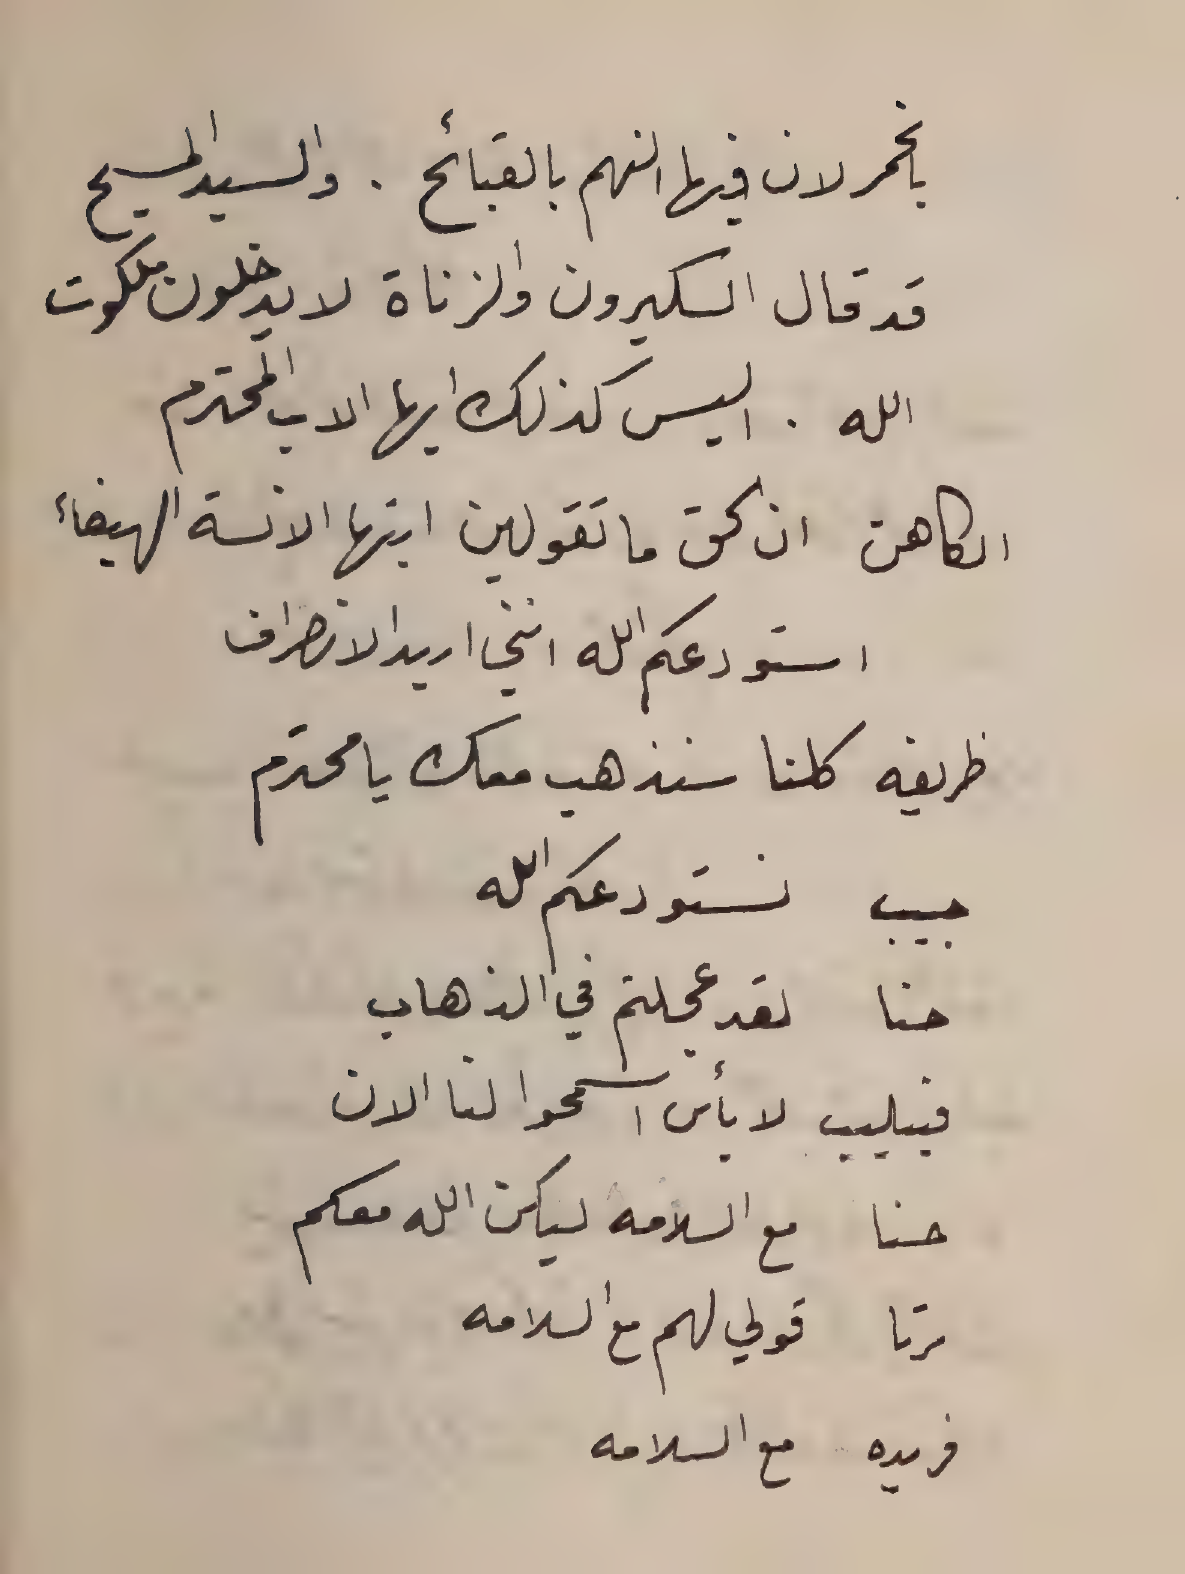 بالخمر لان فيها النهم بالقبائح . والسيد المسيح
قد قال السكيرون والزناة لا يدخلون ملكوت
الله . اليس كذلك ايها الاب المحترم
الكاهن ان لحق ما تقولين ايتها الانسة الهيفاء
استودعكم الله انني اريد الانصراف
ظريفه كلنا سنذهب معك يا محترم
حبيب نستودعكم الله
حنا لقد عجلتم في الذهاب
فيليب لا بأس اسمحوا لنا الان
حنا مع السلامه ليكن الله معكم
مرتا قولي لهم مع السلامه
فريده مع السلامه